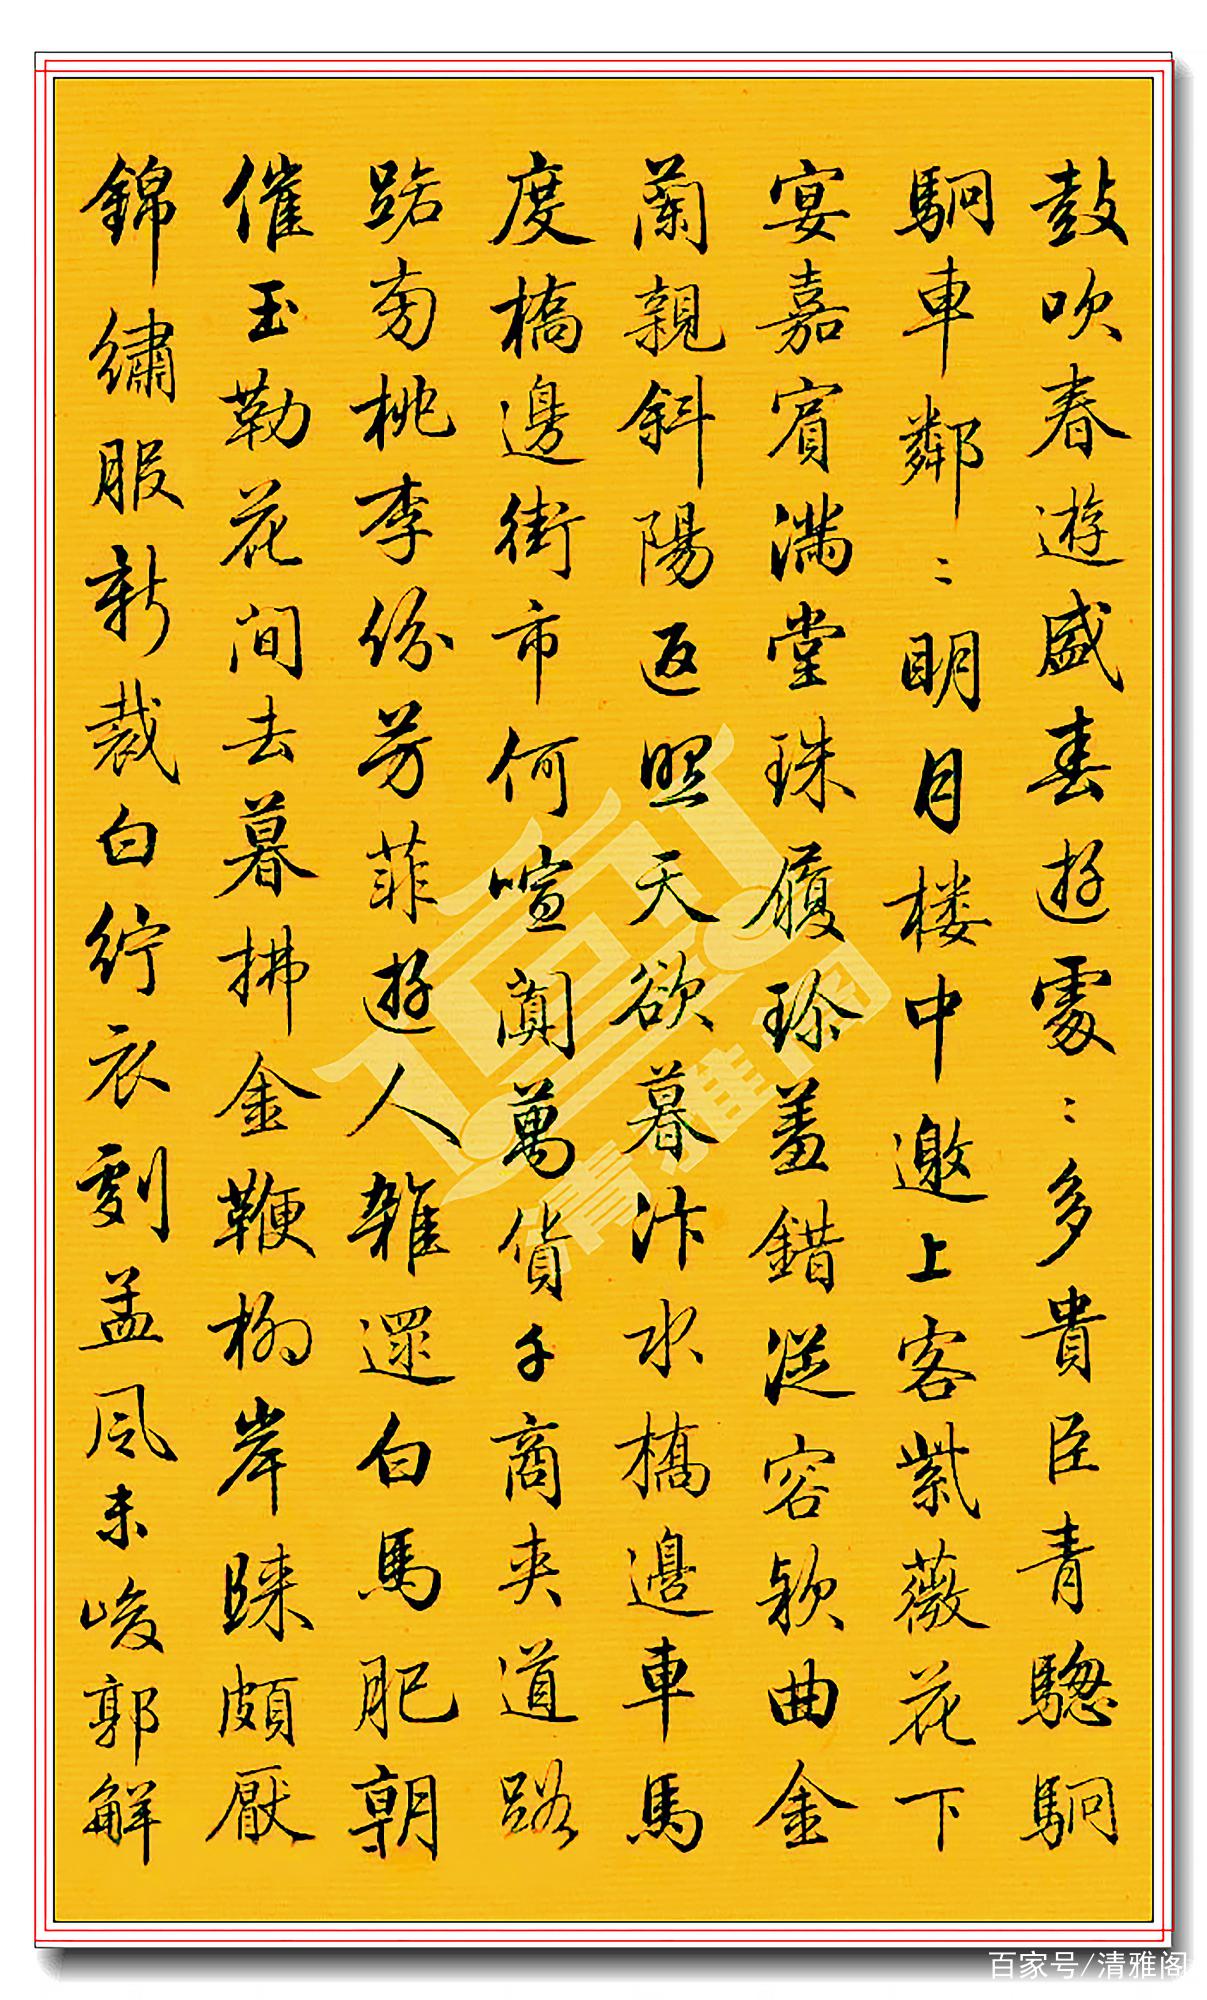 鼓吹春遊盛春遊處〻多貴臣青驄駉
駉車鄰〻明月楼中邀上客紫薇花下
宴嘉賓滿堂珠履珍羞錯從容欵曲金
蘭親斜陽返照天欲暮汴水橋邊車馬
度橋邊街市何喧闐萬貨千商夾道路
路旁桃李份芳菲遊人雜遝白馬肥朝
催玉勒花间去暮拂金鞭柳岸歸頗厭
錦繡服新裁白紵衣劇孟风未峻郭解
清雅阁
百家号/清雅阁